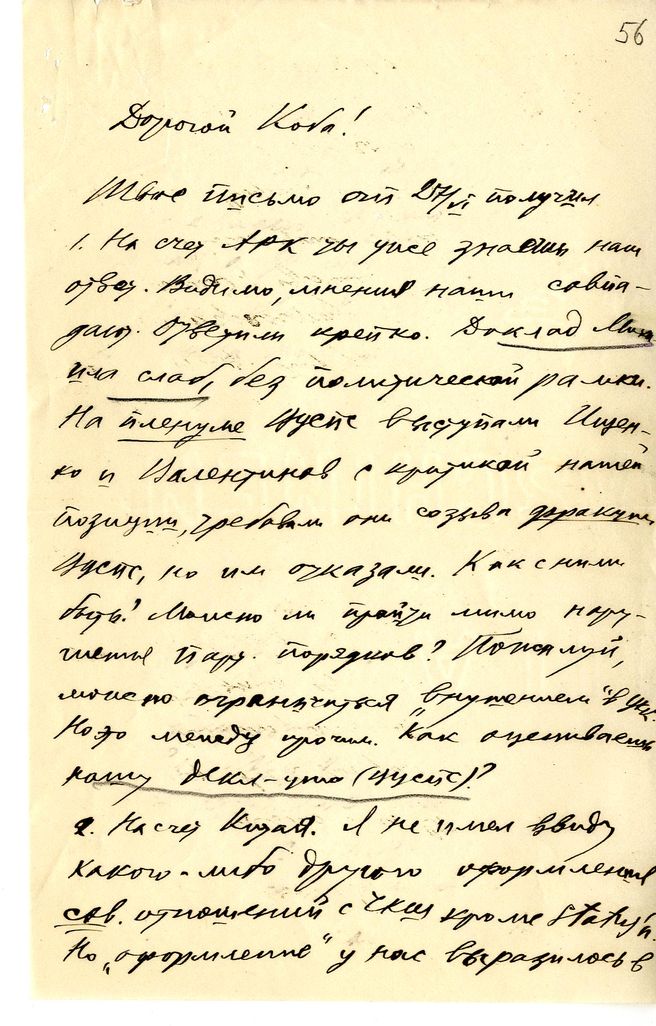 56
Дорогой Коба!
Твое письмо от 27/VI получил
1. На счет АРК ты уже знаешь наш
ответ. Видимо, мнения наши совпа-
дают. Ответили крепко. Доклад Миха
ила слаб, без политической рамки.
На пленуме Цуспс выступали Ищен-
ко и Валентинов с критикой нашей
позиции, требовали они созыва фракции
Цуспс, но им отказали. Как с ними
быть? Можно ли пройти мимо нару-
шенья парт. порядков? Пожалуй,
можно ограничиться "внушением" в ЦКК.
Но это между прочим. Как оцениваешь
нашу декл-цию (Цуспс)?
2. Насчет Китая. Я не имел ввиду
какого-либо другого оформления
сов. отношений с
кроме
Но "оформление" у нас выразилось в